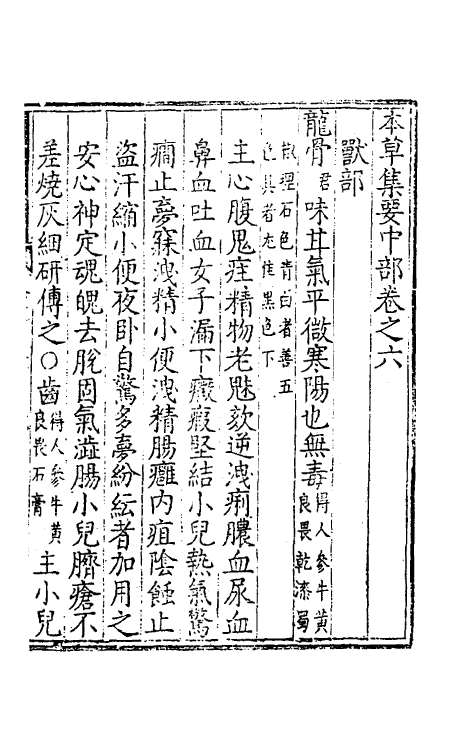 本草集要中部卷之六
獸部
龍骨君味甘氣平微寒陽也無毒得人參牛黃良畏乾漆蜀
椒理石色青白者善五色具者尤佳黑色下
主心腹鬼疰精物老魅欬逆洩痢膿血尿血
鼻血吐血女子漏下癥瘕堅結小兒熱氣驚
癎止夢寐洩精小便洩精腸癰內疽陰蝕止
盜汗縮小便夜卧自驚多夢紛紜者加用之
安心神定魂魄去脫固氣澁腸小兒臍瘡不
差燒灰細研傅之○齒得人參牛黃良畏石膏主小兒